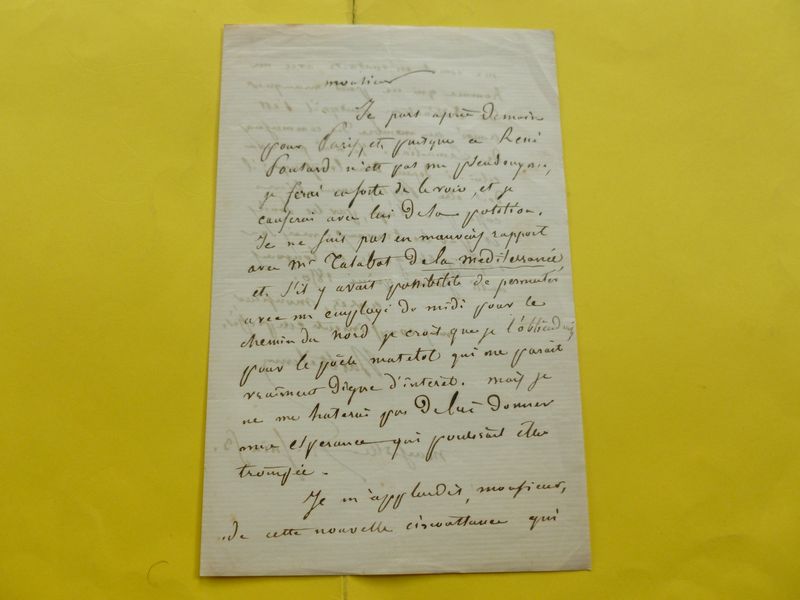 monsieur
Je part après Demain
pour Paris, et puisque ce René
Ponsard n'est pas un pseudonyme,
je ferai ensorte de le voir, et je
causerai avec lui De sa position.
Je ne suis pas en mauvais rapport
avec Mr Talabot De la mediterranée,
et s'il y avait possibilité de permuter
avec un employé du midi pour le
chemin du Nord je crois que je l'obtiendrais
pour le poëte matelot qui me parait
vraiment Digne d'interet. mais je
ne me haterai pas De lui Donner
une esperance qui pourrait être
trompée.
Je m'applaudis, monsieur,
De cette nouvelle circonstance qui